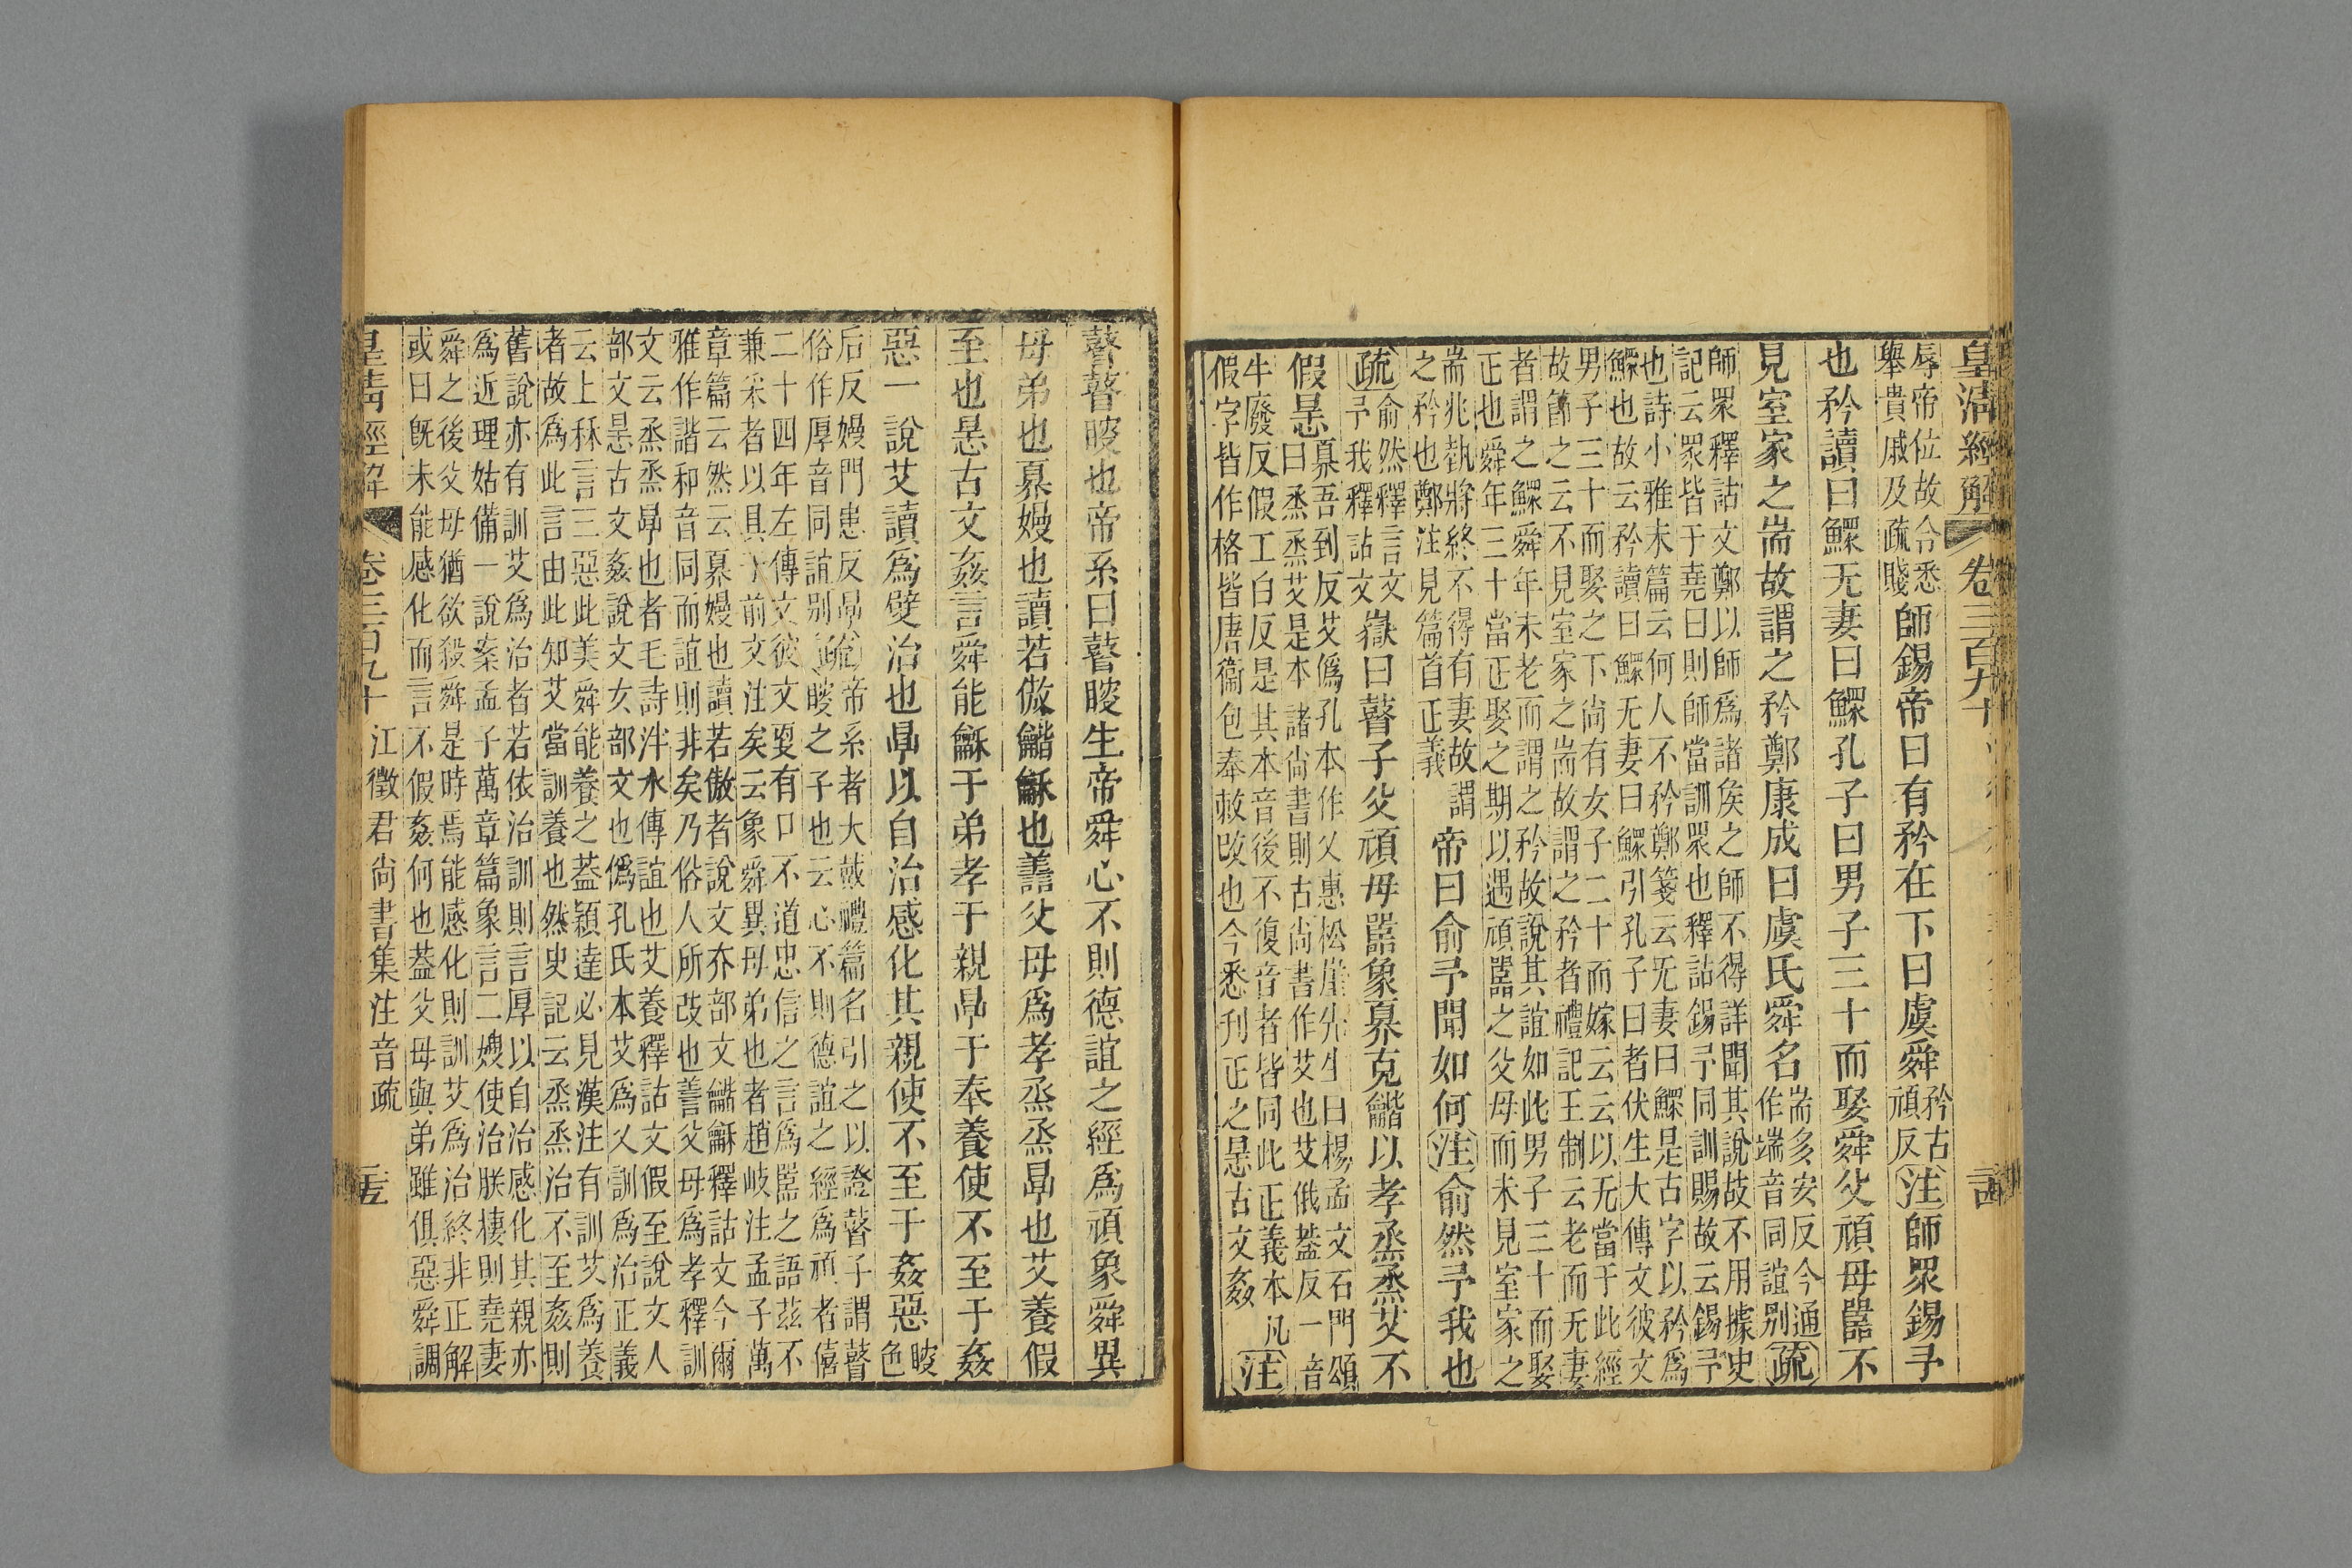 皇清經解 卷三百九十
辱帝位故令悉
舉貴戚及疏賤
師錫帝曰有矜在下曰虞舜
矜古
頑反
注師眾錫予
也矜讀曰鰥无妻曰鰥孔子曰男子三十而娶舜父頑母嚚不
見室家之耑故謂之矜鄭康成曰虞氏舜名
耑多安反今通
作端音同誼别
疏
師眾釋詁文鄭以師爲諸矦之師不得詳聞其說故不用據史
記云眾皆于堯曰則師當訓眾也釋詁錫予同訓賜故云錫予
也詩小雅末篇云何人不矜鄭箋云无妻曰鰥是古字以矜爲
鰥也故云矜讀曰鰥无妻曰鰥引孔子曰者伏生大傳文彼文
男子三十而娶之下尚有女子二十而嫁云云以无當于此經
故節之云不見室家之耑故謂之矜者禮記王制云老而无妻
者謂之鰥舜年未老而謂之矜故說其誼如此男子三十而娶
正也舜年三十當正娶之期以遇頑嚚之父母而未見室家之
耑兆埶將終不得有妻故謂
之矜也鄭注見篇首正義
帝曰俞予聞如何注俞然予我也
疏
俞然釋言文
予我釋詁文
嶽曰瞽子父頑母嚚象奡克龤以孝烝烝艾不
假㫺
奡吾到反艾僞孔本作乂惠松崖先生曰楊孟文石門頌
曰烝烝艾是本諸尚書則古尚書作艾也艾俄葢反一音
牛廢反假工白反是其本音後不復音者皆同此正義本凡
假字皆作格皆唐衞包奉敕改也今悉刊正之㫺古文姦
注
瞽瞽䁂也帝系曰瞽䁂生帝舜心不則德誼之經爲頑象舜異
母弟也奡嫚也讀若傲龤龢也譱父母爲孝烝烝㫗也艾養假
至也㫺古文姦言舜能龢于弟孝于親㫗于奉養使不至于姦
惡一說艾讀爲嬖治也㫗以自治感化其親使不至于姦惡
䁂
色
后反嫚門患反㫗
俗作厚音同誼别
疏
帝系者大戴禮篇名引之以證瞽子謂瞽
䁂之子也云心不則德誼之經爲頑者僖
二十四年左傳文彼文㪅有口不道忠信之言爲嚚之語茲不
兼采者以具于前文注矣云象舜異母弟也者趙岐注孟子萬
章篇云然云奡嫚也讀若傲者說文夰部文龤龢釋詁文今爾
雅作諧和音同而誼則非矣乃俗人所改也善父母爲孝釋訓
文云烝烝㫗也者毛詩泮水傳誼也艾養釋詁文假至說文人
部文㫺古文姦說文女部文也僞孔氏本艾爲乂訓爲治正義
云上秝言三惡此美舜能養之葢穎達必見漢注有訓艾爲養
者故爲此言由此知艾當訓養也然史記云烝烝治不至姦則
舊說亦有訓艾爲治者若依治訓則言厚以自治感化其親亦
爲近理姑備一說案孟子萬章篇象言二嫂使治朕棲則堯妻
舜之後父母猶欲殺舜是時焉能感化則訓艾爲治終非正解
或曰旣未能感化而言不假姦何也葢父母與弟雖俱惡舜調
皇清經解 卷三百九十 江徵君尚書集注音疏